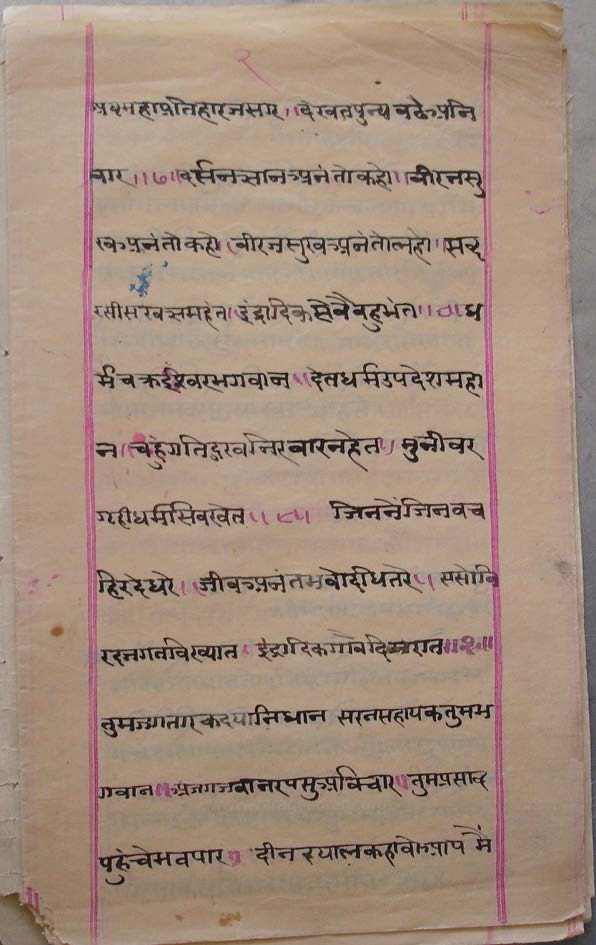 २
अष्टमहाप्रातिहारजसार ॥ देखतपुन्य बढेअनि
वार ॥७॥ दर्सनज्ञानअनंतोकहो ॥ वीरजसु
खअनंतोकहो ॥ वीरजसुखअनंतोलहो ॥ सद्द
रसीसरवज्ञमहंत ॥ इंद्रादिकसेवैबहुभंत ॥८॥ ध
र्मचक्रईश्वरभगवान ॥ देतधर्मउपदेशमहा
न ॥ चहुंगतिदुखनिरवारनहेत ॥ मुनीवर
गृहीधर्मसिवखेत ॥९॥ जिननैंजिनवच
हिरदेधरे ॥ जीवअनंतभवोदधितरे ॥ ससोवि
रदनगतविख्यात ॥ इंद्रादिकगावैदिनरात ॥
तुमजगतारकदयानिधान सरनसहायकतुमभ
गवान ॥ अजगजवानरपसुअविचार ॥ तुमप्रसाद
पहुंचेभवपार ॥ दीनदयालकहावोआप मैं